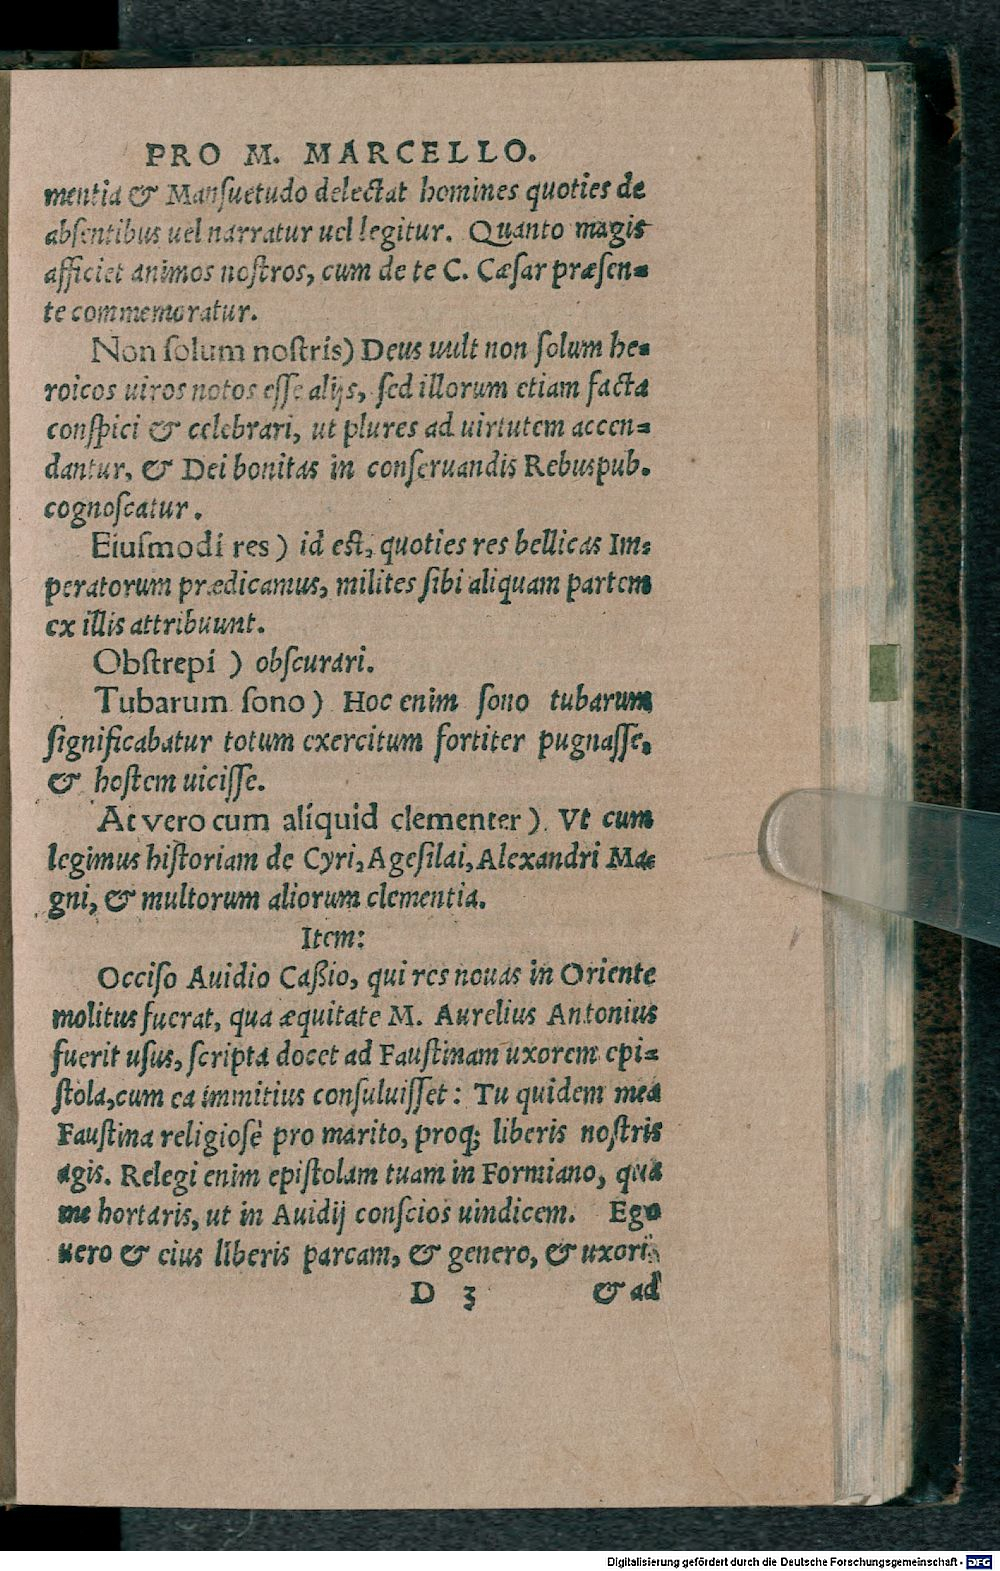 PRO M. MARCELLO.
mentia & Manſuetudo delectat homines quoties de
abſentibus uel narratur uel legitur. Quanto magis
afficiet animos noſtros, cum de te C. Cæſar præſen=
te commemoratur.
Non ſolum noſtris) Deus uult non ſolum he=
roicos uiros notos eſſe alijs, ſed illorum etiam facta
conſpici & celebrari, ut plures ad uirtutem accen=
dantur, & Dei bonitas in conſeruandis Rebuspub.
cognoſcatur.
Eiuſmodi res) id eſt, quoties res bellicas Im=
peratorum prædicamus, milites ſibi aliquam partem
ex illis attribuunt.
Obſtrepi) obſcurari.
Tubarum ſono) Hoc enim ſono tubarum
ſignificabatur totum exercitum fortiter pugnaſſe,
& hoſtem uiciſſe.
At vero cum aliquid clementer). Vt cum
legimus hiſtoriam de Cyri, Ageſilai, Alexandri Ma=
gni, & multorum aliorum clementia.
Item:
Occiſo Auidio Caßio, qui res nouas in Oriente
molitus fuerat, qua æquitate M. Aurelius Antonius
fuerit uſus, ſcripta docet ad Fauſtinam uxorem epi=
ſtola, cum ea immitius conſuluiſſet: Tu quidem mea
Fauſtina religioſè pro marito, proq; liberis noſtris
agis. Relegi enim epiſtolam tuam in Formiano, qua
me hortaris, ut in Auidij conſcios uindicem. Ego
uero & eius liberis parcam, & genero, & uxori,
D 3 & ad
Digitalisierung gefördert durch die Deutsche Forschungsgemeinschaft - DFG